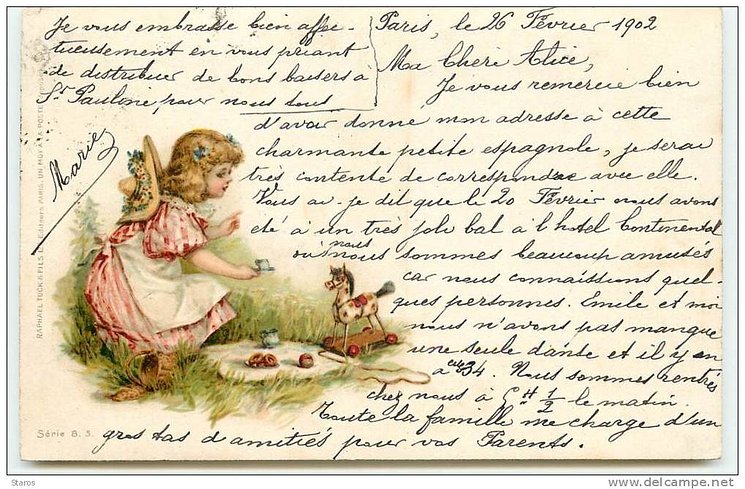 Paris, le 26 Février 1902
Ma Chère Alice,
Je vous remercie bien
d'avoir donné mon adresse à cette
charmante petite espagnole, je serai
très contente de correspondre avec elle.
Vous ai-je dit que le 20 Février nous avons
été à un très joli bal à l'hotel Continental
où nous nous sommes beaucoup amusés
car nous connaissions quel-
ques personnes. Emile et moi
nous n'avons pas manqué
une seule danse et il y en
a eu 34. Nous sommes rentrés
chez nous à 5H 1/2 le matin.
Toute la famille me charge d'un
gros tas d'amitiés pour vos Parents.
Je vous embrasse bien affec-
tueusement en vous priant
de distribuer de bons baisers à
St Pauloire pour nous tous
Marie
RAPHAEL TUCK & FILS
Editeurs PARIS. UN MOT A LA POSTE
Série B. 3.
Staros
delcampe.net